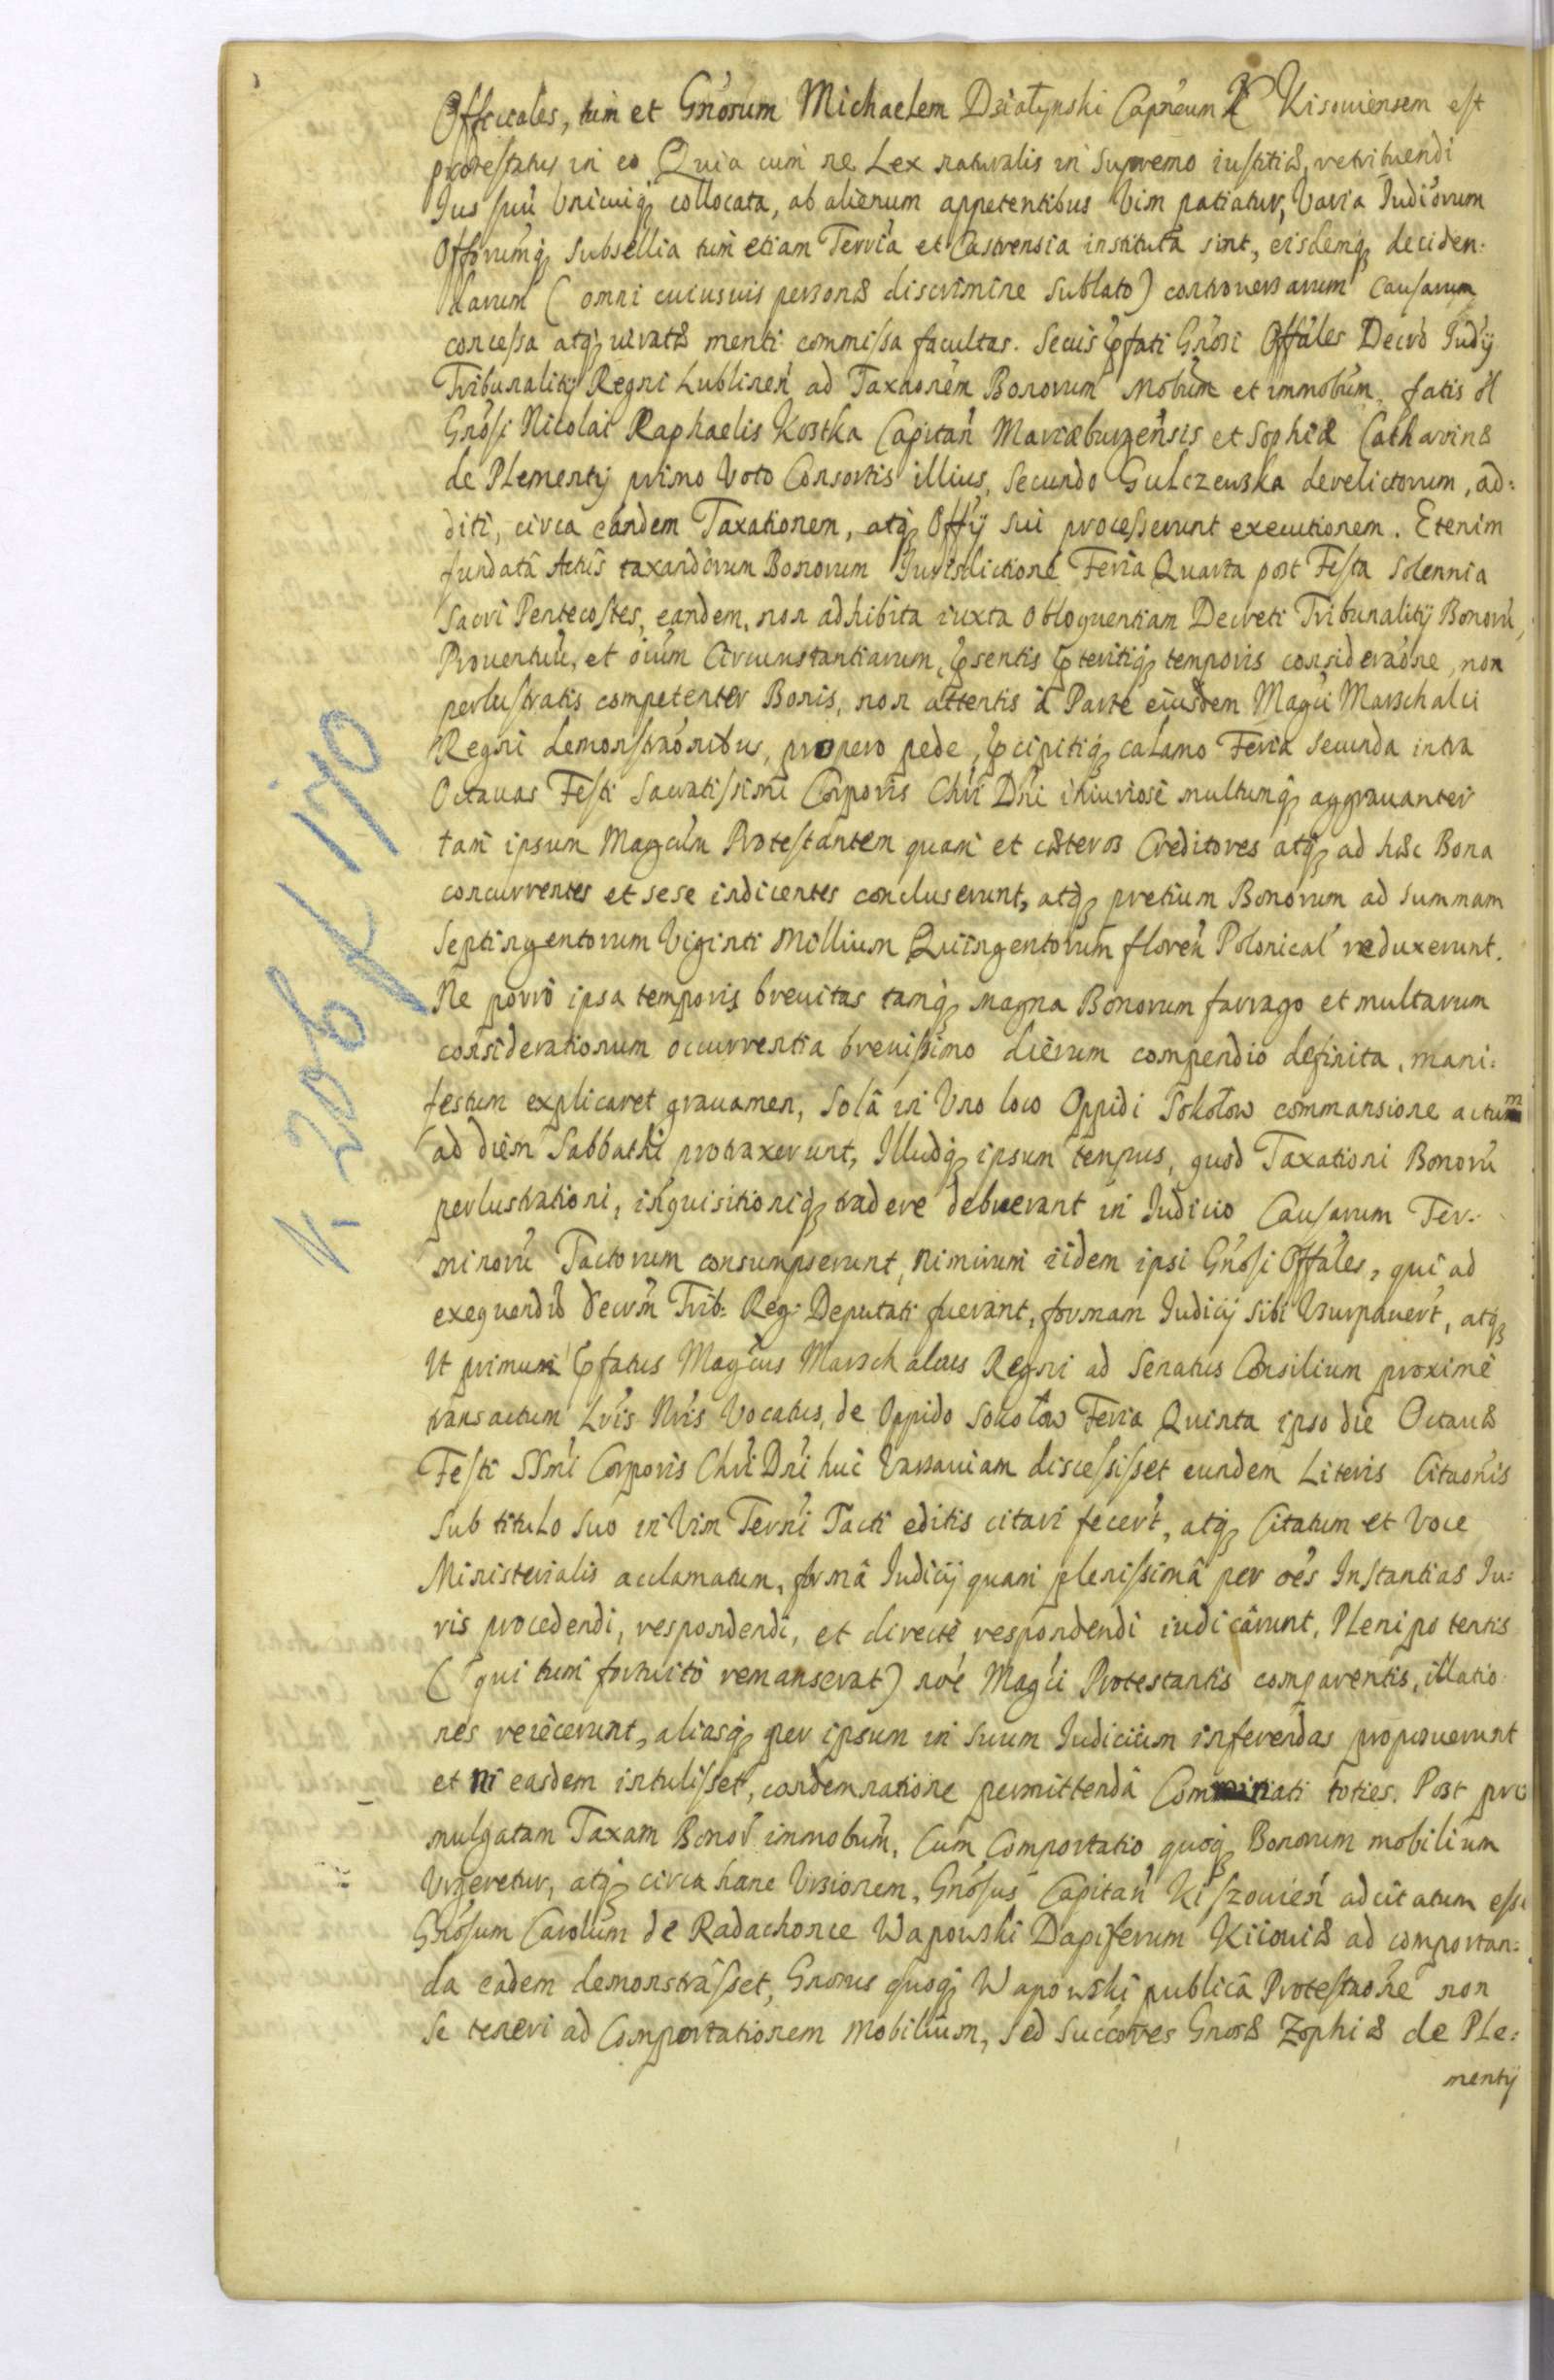 Officiales, tum et Gnŏsum Michaelem Działynski Capneum Kisouiensem est
protestatus in eo Quia cum ne Lex naturalis in supremo iustitiæ, retribuendi
Jus suũ Vnicuiq; collocata, ab alienum appetentibus Vim patiatur, Varia Judiorum
Offorumq; subsellia tum etiam Terria et Castrensia instituta sint, eisdemq; deciden:
darum (omni cuiusuis personæ discrimine sublato) controuersarum causarum
concessa atq; iuratæ menti commissa facultas. Secus pfati Gnosi Offales Decro Judÿ
Tribunalitÿ Regni Lublinen̄ ad Taxaonem Bonorum Mobum et immobum, fatis ol
Gnosi Nicolai Raphaelis Kostka Capitan̄ Mariæburgensis et Sophiæ Catharinæ
de Plementÿ primo Voto Consortis illius, secundo Gulczewska derelictorum, ad:
diti, circa eandem Taxationem, atq; Offÿ sui processerunt executionem. Etenim
fundatâ Actûs taxandorum Bonorum Jurisdictione Feria Quarta post Festa Solennia
Sacri Pentecostes, eandem, non adhibita iuxta obloquentiam Decreti Tribunalitÿ Bonorũ,
Prouentuũ, et oium Circumstantiarum, psentis pteritiq; temporis consideraone, non
perlustratis competenter Bonis, non attentis à Parte eiusdem Magci Marschalci
Regni demonstraonibus, propero pede, pcipitiq; calamo Feria secunda intra
Octauas Festi Sacratissimi Corporis Chri Dni iniuriose multumq; aggrauanter
tam ipsum Magcum Protestantem quam et cæteros Creditores atq; ad hæc Bona
concurrentes et sese indicentes concluserunt, atq; pretium Bonorum ad summam
Septingentorum Viginti Millium Quingentorum floren̄ Polonical reduxerunt.
Ne porrò ipsa temporis breuitas tamq; magna Bonorum farrago et multarum
considerationum occurrentia breuissimo dierum compendio definita, mani:
festum explicaret grauamen, Solâ in Vno loco Oppidi Sokołow commansione actum
ad diem Sabbathi protraxerunt, Illudq; ipsum tempus, quod Taxationi Bonorũ
perlustrationi, inquisitioniq; tradere debuerant in Judicio Causarum Ter:
minorũ Tactorum consumpserunt, nimirum iidem ipsi Gnosi Offales, qui ad
exequendũ Decrm Trib: Reg: Deputati fuerant, formam Judicÿ sibi Vsurpauert, atq;
Vt primum pfatus Magcus Marschalcus Regni ad Senatus Consilium proximè
transactum Lris Nris Vocatus, de Oppido Sokołow Feria Quinta ipso die Octauæ
Festi SSmi Corporis Chri Dni huc Varsauiam discessisset eundem Literis Citaonis
sub titulo suo in Vim Terni Tacti editis citari fecert, atq; Citatum et Voce
Ministerialis acclamatum, formâ Judicÿ quam plenissimâ per oes Instantias Ju:
ris procedendi, respondendi, et directè respondendi iudicârunt, Plenipotentis
(qui tum fortuitò remanserat) noe Magci Protestantis comparentis, illatio:
nes reiecerunt, aliasq; per ipsum in suum Judicium inferendas
et ni easdem intulisset, condemnatione permittendâ Comminati toties. Post pro
mulgatam Taxam Bonor immobum, Cum Comportatio quoq; Bonorum mobilium
Vrgeretur, atq; circa hanc Vrsionem, Gnosus Capitan̄ Kiszouien̄ adcitatum esse
Gnosum Carolum de Radachonce Wapowski Dapiferum Kiiouiæ ad comportan:
da eadem demonstrâsset, Gnosus quoq; Wapowski publicâ Protestaone non
se teneri ad Comportationem mobilium, sed succores Gnosæ Zophiæ de Ple:
mentÿ
N. 206 K 170